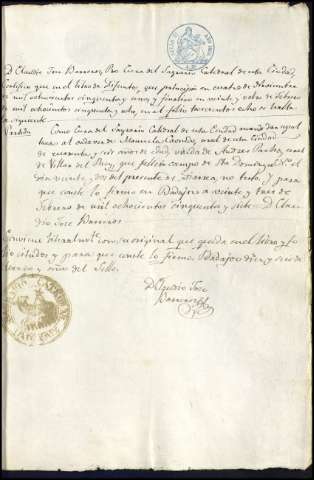 D. Claudio José Barrenas, Pro Cura del Sagrario Catedral de esta Ciudad,
Certifico que en el libro de Difuntos, que principia en cuatro de Noviembre
de mil ochocientos cincuenta y uno, y finaliza en veinte y ocho de Febrero
de mil ochocientos cincuenta y ocho, en el folio trescientos ocho se halla
la siguiente
Partida Como Cura del Sagrario Catedral de esta Ciudad mandé dar sepul
tura al cadaver de Manuela natural de esta Ciudad
de cuarenta y seis años de edad, viuda de Andres natural
de Villar del Rey, que falleció campo de Sto Domingo
dia veinte y dos del presente no testó. Y para
que conste lo firmo en Badajoz a veinte y tres de
Febrero de mil ochocientos cincuenta y siete. D. Clau
dio José Barrenas
Conviene literalmte con su original que queda en el libro y fo
lio citados y para que conste lo firmo. Badajoz diez y seis de
y del Sello.
D. Claudio José
Barrenas